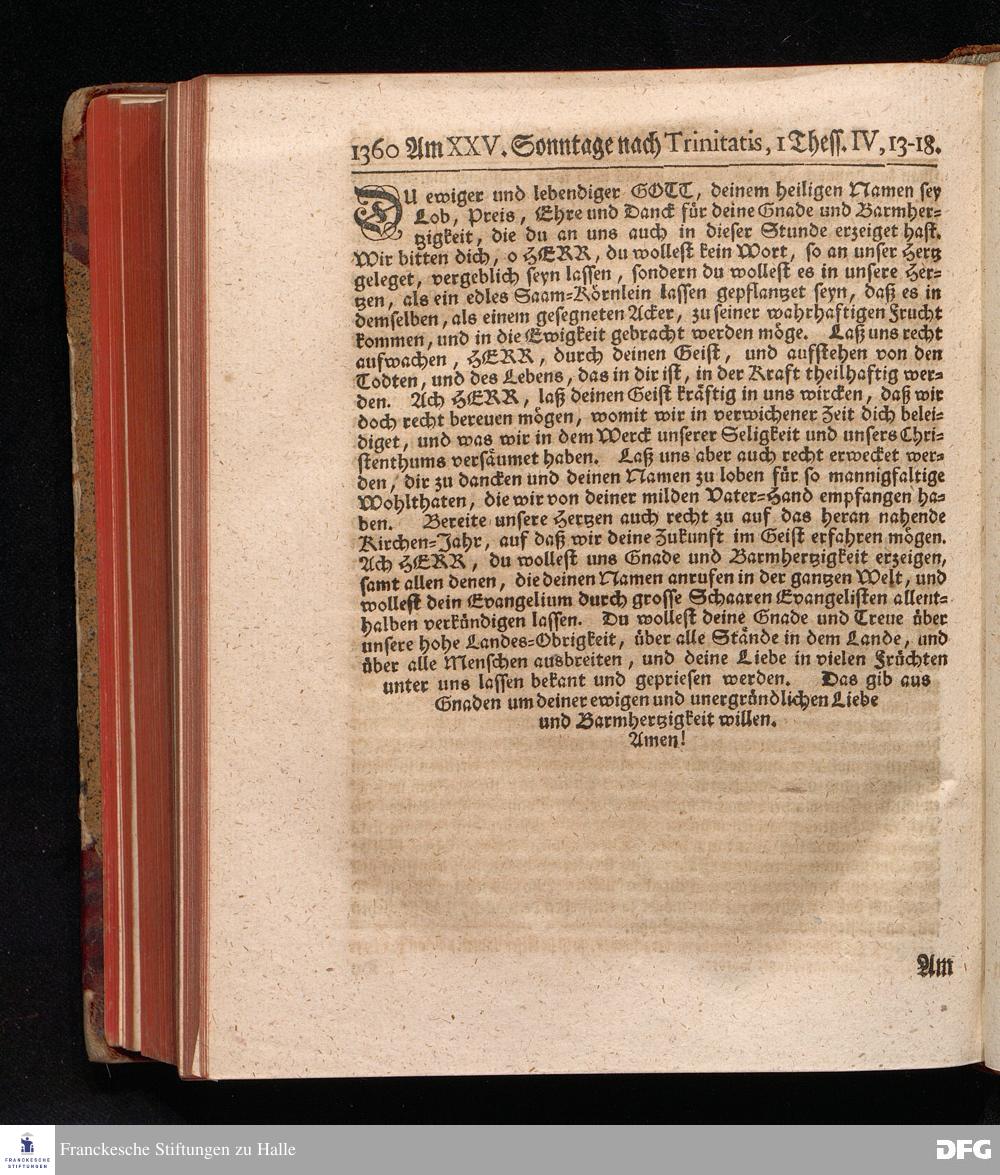 1360 Am XXV. Sonntage nach Trinitatis, 1 Thess. IV, 13-18.
DU ewiger und lebendiger GOTT, deinem heiligen Namen sey
Lob, Preis, Ehre und Danck für deine Gnade und Barmher-
tzigkeit, die du an uns auch in dieser Stunde erzeiget hast.
Wir bitten dich, o HERR, du wollest kein Wort, so an unser Hertz
geleget, vergeblich seyn lassen, sondern du wollest es in unsere Her-
tzen, als ein edles Saam-Körnlein lassen gepflantzet seyn, daß es in
demselben, als einem gesegneten Acker, zu seiner wahrhaftigen Frucht
kommen, und in die Ewigkeit gebracht werden möge. Laß uns recht
aufwachen, HERR, durch deinen Geist, und aufstehen von den
Todten, und des Lebens, das in dir ist, in der Kraft theilhaftig wer-
den. Ach HERR, laß deinen Geist kräftig in uns wircken, daß wir
doch recht bereuen mögen, womit wir in verwichener Zeit dich belei-
diget, und was wir in dem Werck unserer Seligkeit und unsers Chri-
stenthums versäumet haben. Laß uns aber auch recht erwecket wer-
den, dir zu dancken und deinen Namen zu loben für so mannigfaltige
Wohlthaten, die wir von deiner milden Vater-Hand empfangen ha-
ben. Bereite unsere Hertzen auch recht zu auf das heran nahende
Kirchen-Jahr, auf daß wir deine Zukunft im Geist erfahren mögen.
Ach HERR, du wollest uns Gnade und Barmhertzigkeit erzeigen,
samt allen denen, die deinen Namen anrufen in der gantzen Welt, und
wollest dein Evangelium durch grosse Schaaren Evangelisten allent-
halben verkündigen lassen. Du wollest deine Gnade und Treue über
unsere hohe Landes-Obrigkeit, über alle Stände in dem Lande, und
über alle Menschen ausbreiten, und deine Liebe in vielen Früchten
unter uns lassen bekant und gepriesen werden. Das gib aus
Gnaden um deiner ewigen und unergründlichen Liebe
und Barmhertzigkeit willen.
Amen!
Am
FRANCKESCHE
STIFTUNGEN
Franckesche Stiftungen zu Halle
DFG